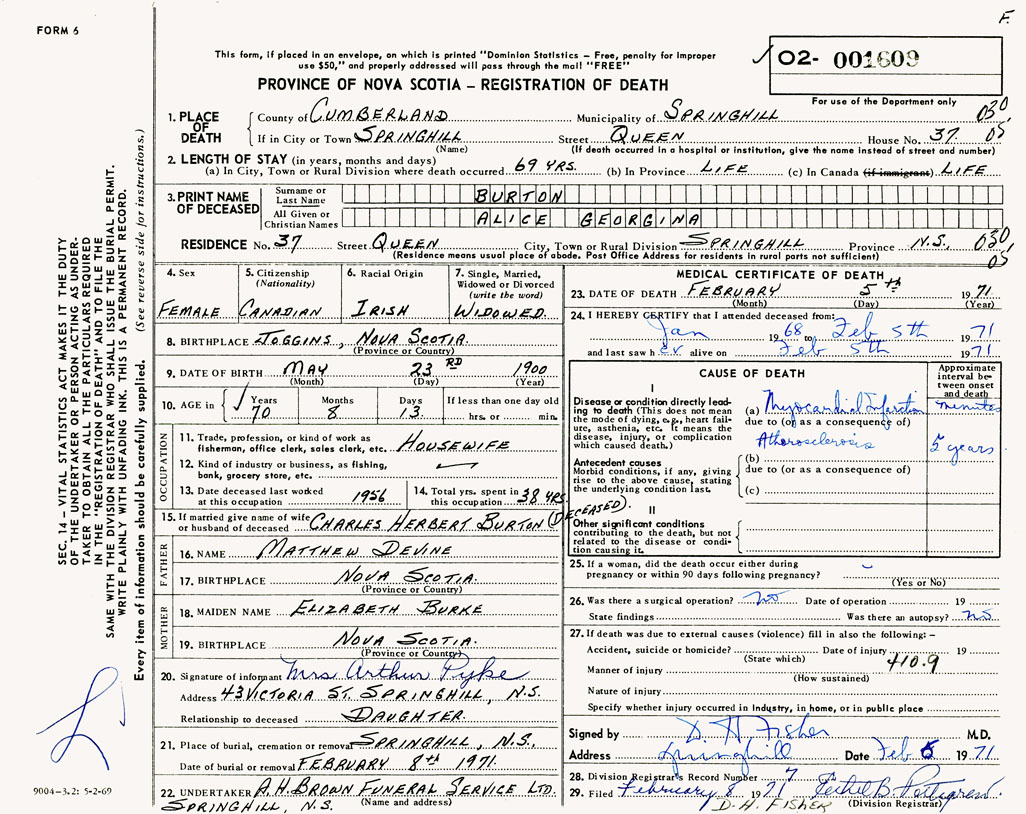 F.
FORM 6
This form, if placed in an envelope, on which is printed "Dominion Statistics – Free, penalty for improper
use $50," and properly addressed will pass through the mail "FREE"
02- 001609
PROVINCE OF NOVA SCOTIA – REGISTRATION OF DEATH
For use of the Department only
1. PLACE OF DEATH
County of CUMBERLAND Municipality of SPRINGHILL 030
If in City or Town SPRINGHILL Street QUEEN House No. 37 05
(Name) (If death occurred in a hospital or institution, give the name instead of street and number)
2. LENGTH OF STAY (in years, months and days)
(a) In City, Town or Rural Division where death occurred 69 YRS. (b) In Province LIFE (c) In Canada (if immigrant) LIFE
3. PRINT NAME OF DECEASED
Surname or Last Name BURTON
All Given or Christian Names ALICE GEORGINA
RESIDENCE No. 37 Street QUEEN City, Town or Rural Division SPRINGHILL Province N.S. 030
(Residence means usual place of abode. Post Office Address for residents in rural parts not sufficient) 05
4. Sex
FEMALE
5. Citizenship
(Nationality)
CANADIAN
6. Racial Origin
IRISH
7. Single, Married,
Widowed or Divorced
(write the word)
WIDOWED
8. BIRTHPLACE JOGGINS, NOVA SCOTIA.
(Province or Country)
9. DATE OF BIRTH MAY 23RD 1900
(Month) (Day) (Year)
10. AGE in
Years Months Days If less than one day old
70 8 13. hrs. or min.
OCCUPATION
11. Trade, profession, or kind of work as
fisherman, office clerk, sales clerk, etc. HOUSEWIFE
12. Kind of industry or business, as fishing,
bank, grocery store, etc.
13. Date deceased last worked
at this occupation 1956
14. Total yrs. spent in
this occupation 38 YRS.
15. If married give name of wife
or husband of deceased CHARLES HERBERT BURTON (DECEASED).
FATHER
16. NAME MATTHEW DEVINE
17. BIRTHPLACE NOVA SCOTIA
(Province or Country)
MOTHER
18. MAIDEN NAME ELIZABETH BURKE
19. BIRTHPLACE NOVA SCOTIA.
(Province or Country)
20. Signature of informant Mrs Arthur Pyke
Address 43 VICTORIA ST. SPRINGHILL, N.S.
Relationship to deceased DAUGHTER.
21. Place of burial, cremation or removal SPRINGHILL, N.S.
Date of burial or removal FEBRUARY 8th 1971.
22. UNDERTAKER A.H. BROWN FUNERAL SERVICE LTD.
(Name and address)
SPRINGHILL, N.S.
MEDICAL CERTIFICATE OF DEATH
23. DATE OF DEATH FEBRUARY 5th 1971
(Month) (Day) (Year)
24. I HEREBY CERTIFY that I attended deceased from:
Jan 1968 to Feb 5th 1971
and last saw her alive on Feb 5th 1971
CAUSE OF DEATH
Approximate
interval be-
tween onset
and death
I
Disease or condition directly lead-
ing to death (This does not mean
the mode of dying, e.g., heart fail-
ure, asthenia, etc. It means the
disease, injury, or complication
which caused death.)
(a) Myocardial Infarction minutes
due to (or as a consequence of)
Atherosclerosis 5 years
Antecedent causes
Morbid conditions, if any, giving
rise to the above cause, stating
the underlying condition last.
(b)
due to (or as a consequence of)
(c)
II
Other significant conditions
contributing to the death, but not
related to the disease or condi-
tion causing it.
25. If a woman, did the death occur either during
pregnancy or within 90 days following pregnancy?
(Yes or No)
26. Was there a surgical operation? no Date of operation 19
State findings Was there an autopsy? no
27. If death was due to external causes (violence) fill in also the following: –
Accident, suicide or homicide? Date of injury 19
(State which) 410.9
Manner of injury
(How sustained)
Nature of injury
Specify whether injury occurred in industry, in home, or in public place
Signed by D. H Fisher M.D.
Address Springhill Date Feb 5 1971
28. Division Registrar's Record Number 7
29. Filed February 8 1971
(Division Registrar)
D.H. FISHER
SEC. 14 – VITAL STATISTICS ACT MAKES IT THE DUTY
OF THE UNDERTAKER OR PERSON ACTING AS UNDER-
TAKER TO OBTAIN ALL THE PARTICULARS REQUIRED
IN THE "REGISTRATION OF DEATH" AND TO FILE THE
SAME WITH THE DIVISION REGISTRAR WHO SHALL ISSUE THE BURIAL PERMIT.
WRITE PLAINLY WITH UNFADING INK. THIS IS A PERMANENT RECORD.
Every item of information should be carefully supplied. (See reverse side for instructions.)
9004-3.2: 5-2-69